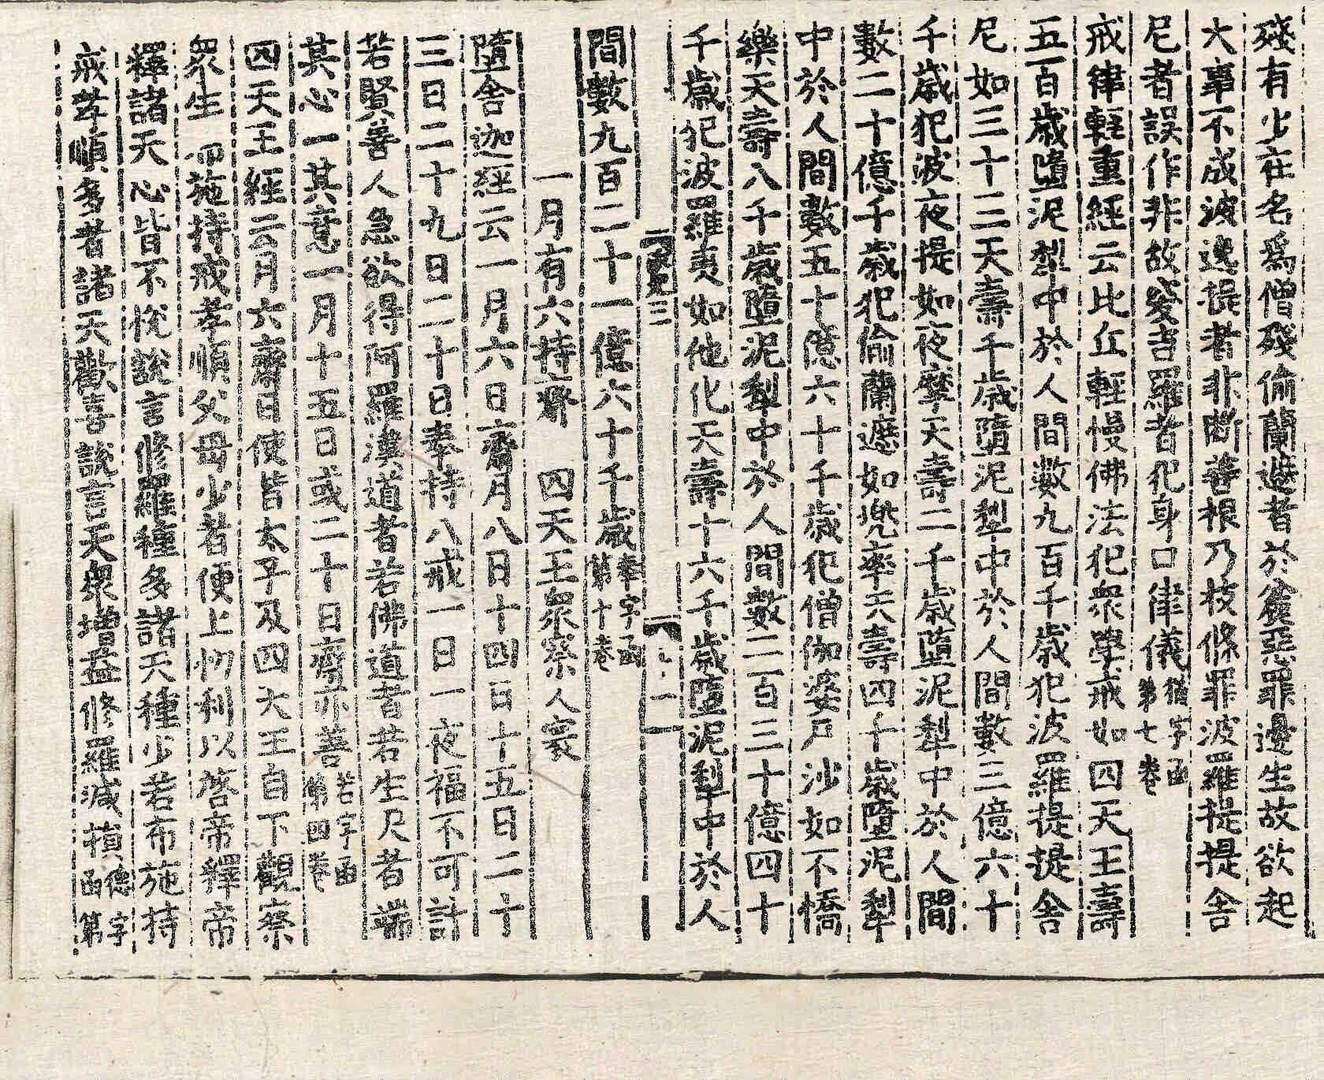 殘有少在名爲僧殘偷蘭遮者於麁惡罪邊生故欲起
大事不成波逸提者非斷善根乃枝條罪波羅提提舍
尼者誤作非故突吉羅者犯身口律儀猶字函第七卷
戒律輕重經云比丘輕慢佛法犯衆學戒如四天王壽
五百歲墮泥犁中於人間數九百千歲犯波羅提提舍
尼如三十三天壽千歲墮泥犁中於人間數三億六十
千歲犯波夜提如夜摩天壽二千歲墮泥犁中於人間
數二十億千歲犯偷蘭遮如兜率天壽四千歲墮泥犁
中於人間數五十億六十千歲犯僧伽婆尸沙如不憍
樂天壽八千歲墮泥犁中於人間數二百三十億四十
千歲犯波羅夷如他化天壽十六千歲墮泥犁中於人
三
間數九百二十一億六十千歲奉字函第十卷
一月有六持齋 四天王衆察人寰
墮舍迦經云一月六日齋月八日十四日十五日二十
三日二十九日二十日奉持八戒一日一夜福不可計
若賢善人急欲得阿羅漢道者若佛道者若生尺者端
其心一其意一月十五日或二十日齋亦善若字函第四卷
四天王經云月六齋日使皆太子及四大王自下觀察
衆生 布施持戒孝順父母少者便上忉利以啓帝釋帝
釋諸天心皆不悅說言修羅種多諸天種少若布施持
戒孝順多者諸天歡喜說言天衆增益修羅減損德字函第